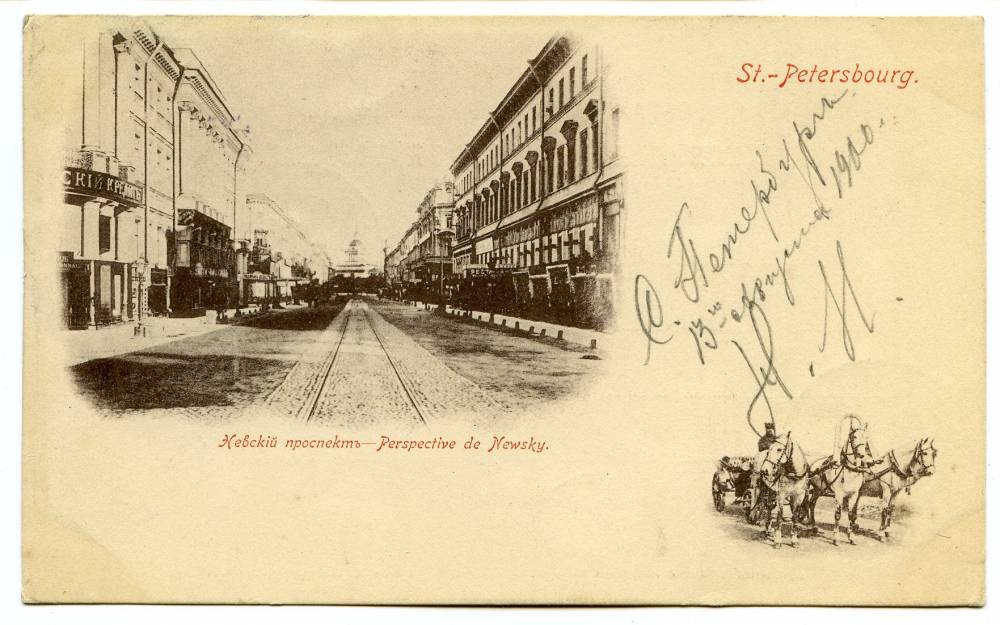 St.-Petersbourg.
С. Петербургъ.
13го августа 1900 г.
СКІЙ КРЕДИТЪ
Невскій проспектъ—Perspective de Newsky.